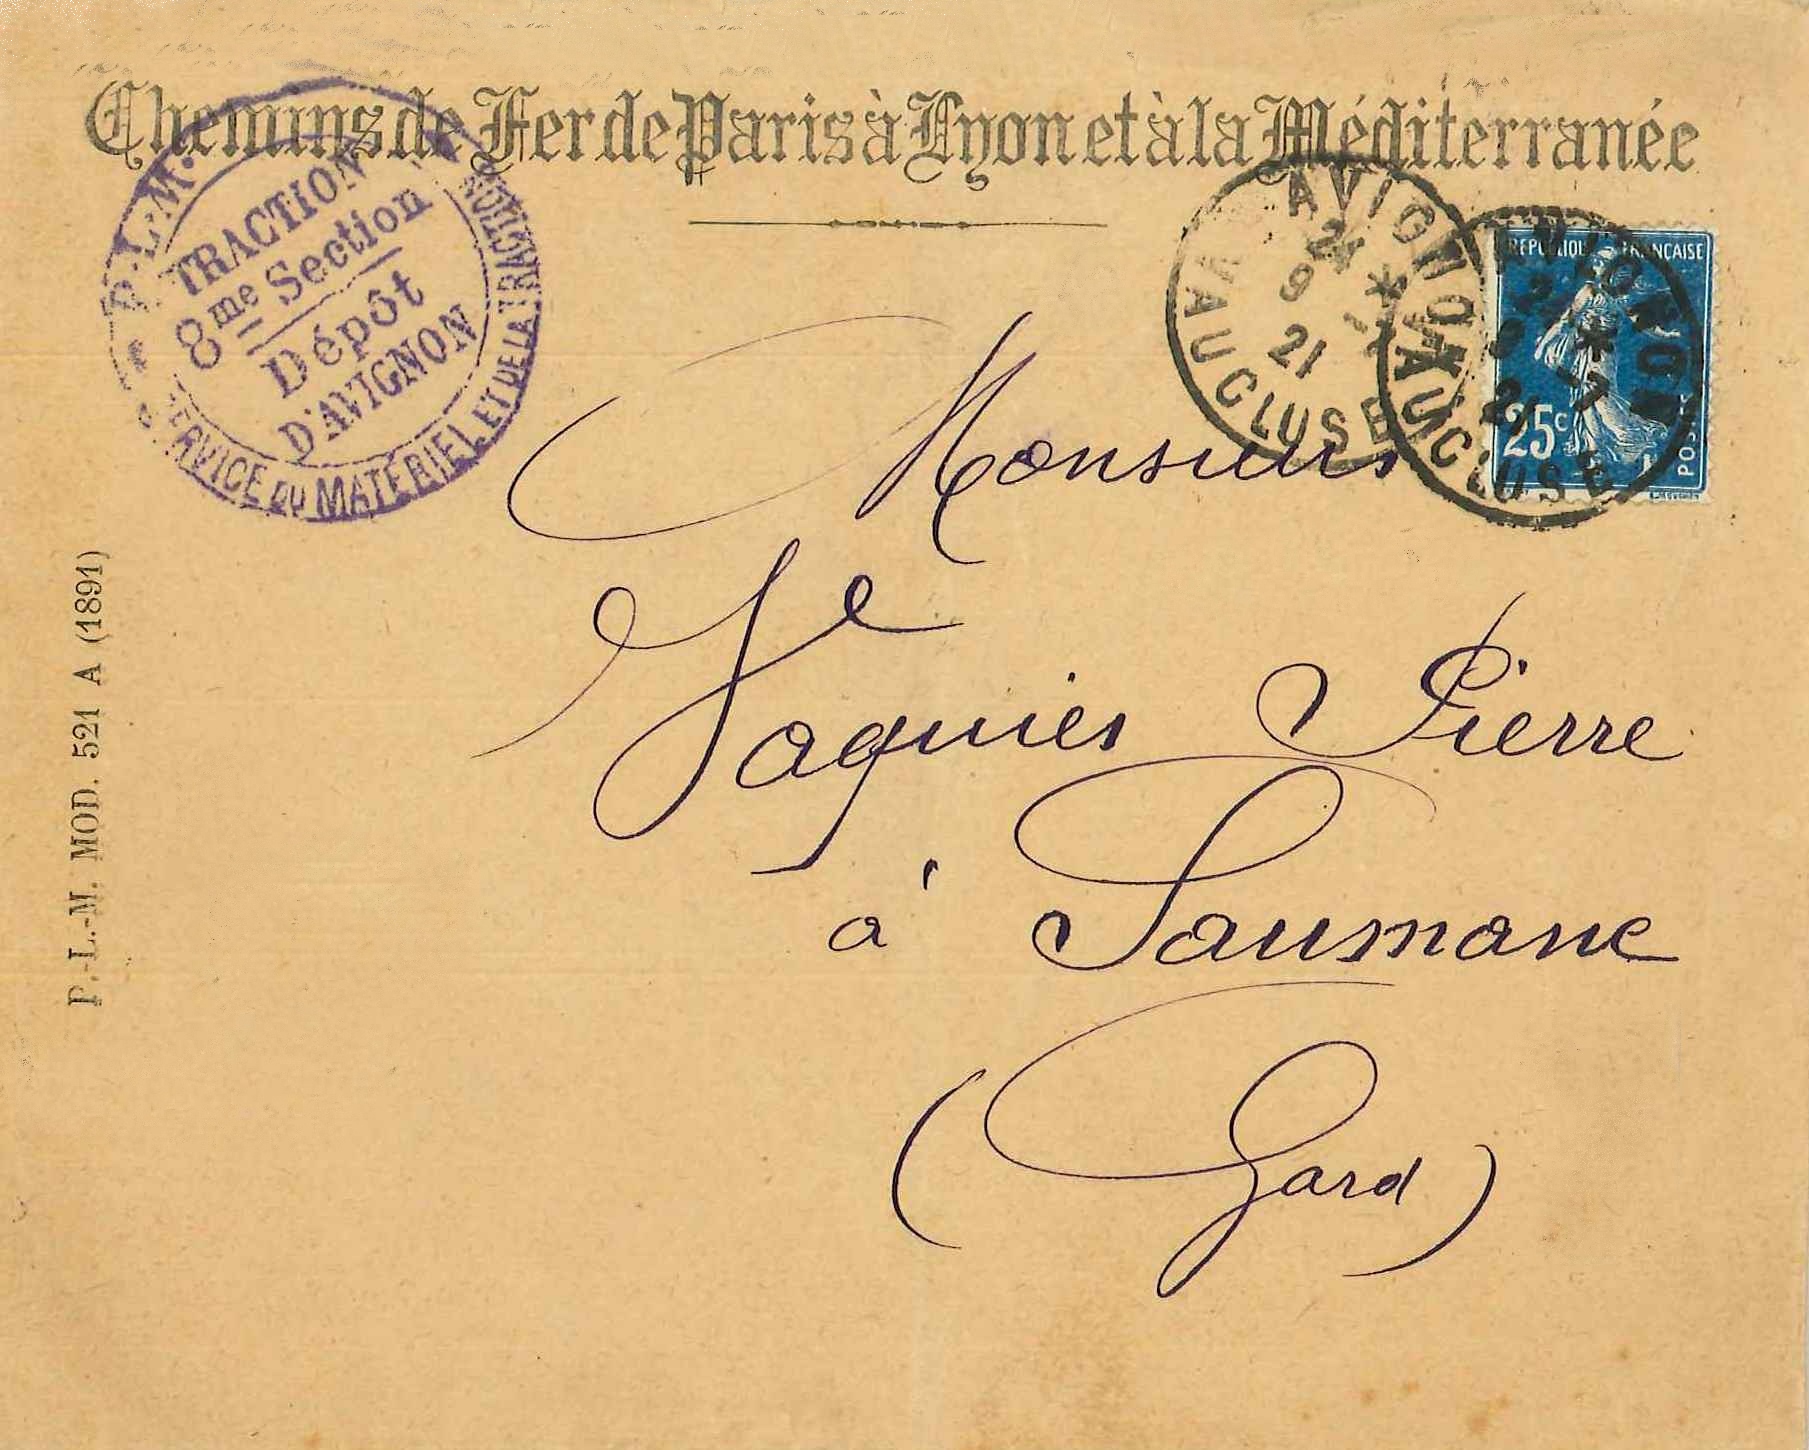 Chemins de Fer de Paris à Lyon et à la Méditerranée
P.-L.-M.
TRACTION
8me Section
Dépôt
D'AVIGNON
SERVICE DU MATÉRIEL ET DE LA TRACTION
AVIGNON
24 *
9 -7
21
VAUCLUSE
AVIGNON
9 -7
21
VAUCLUSE
REPUBLIQUE FRANÇAISE
25c
Monsieur
Pierre
à Saumane
(Gard)
P.-L.-M. MOD. 521 A (1891)